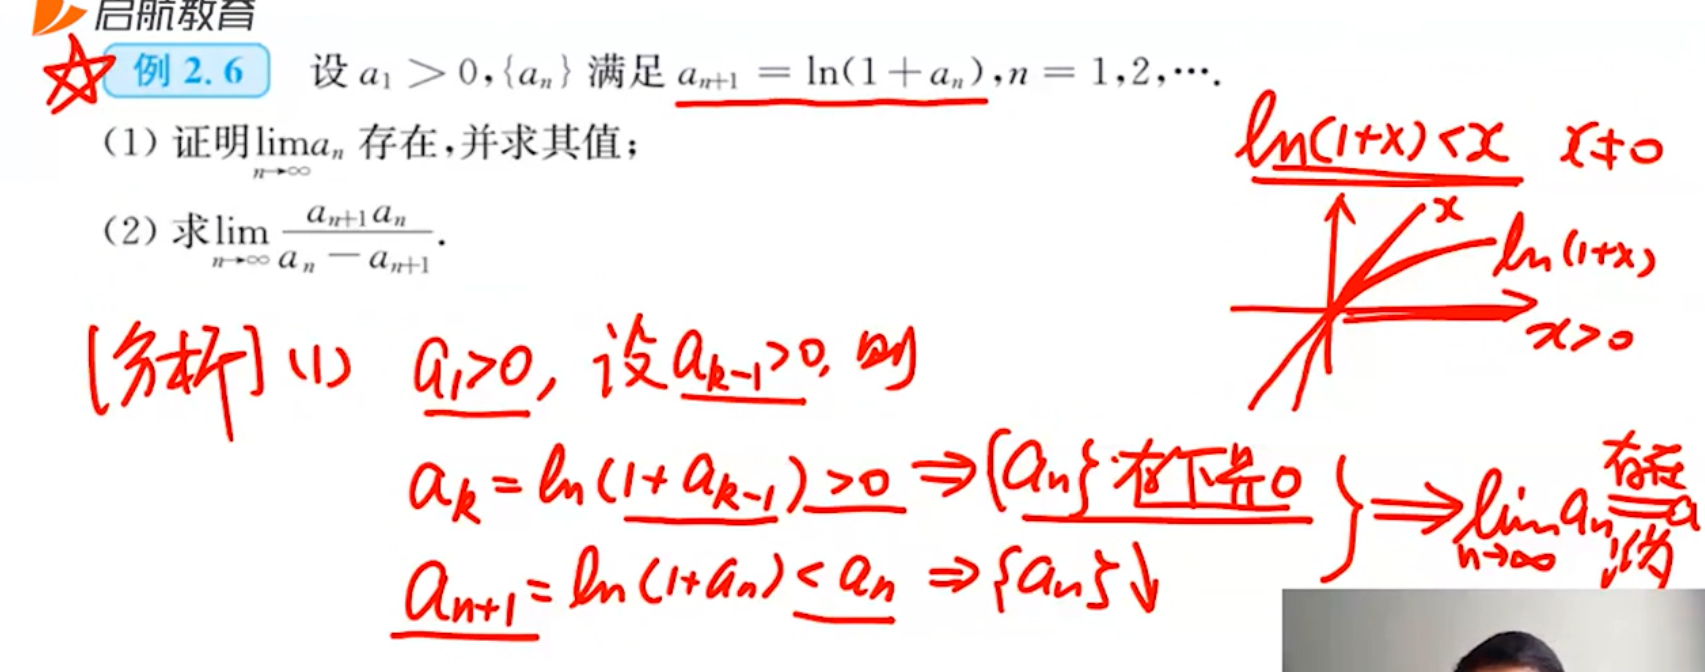 启航教育
例 2.6 设 a₁ > 0,{aₙ} 满足 aₙ₊₁ = ln(1+aₙ),n = 1,2,⋯.
(1) 证明 lim_{n→∞} aₙ 存在,并求其值;
(2) 求 lim_{n→∞} (aₙ₊₁aₙ)/(aₙ − aₙ₊₁).
ln(1+x)<x x≠0
x
ln(1+x)
x>0
[分析] (1) a₁>0, 设 aₖ₋₁>0, 则
aₖ = ln(1+aₖ₋₁)>0 ⇒ {aₙ} 有下界0
aₙ₊₁ = ln(1+aₙ) < aₙ ⇒ {aₙ}↓
} ⇒ lim_{n→∞} aₙ 存在 记为 = a